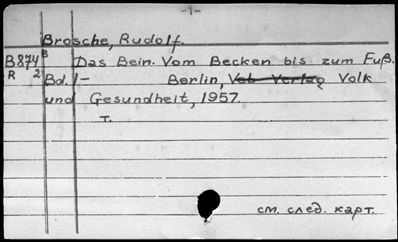 -1-
Brosche, Rudolf.
B874 B Das Bein. Vom Becken bis zum Fuß.
R 2 Bd. 1- Berlin, Veb Verlag Volk
und Gesundheit, 1957.
T.
см. след. карт.